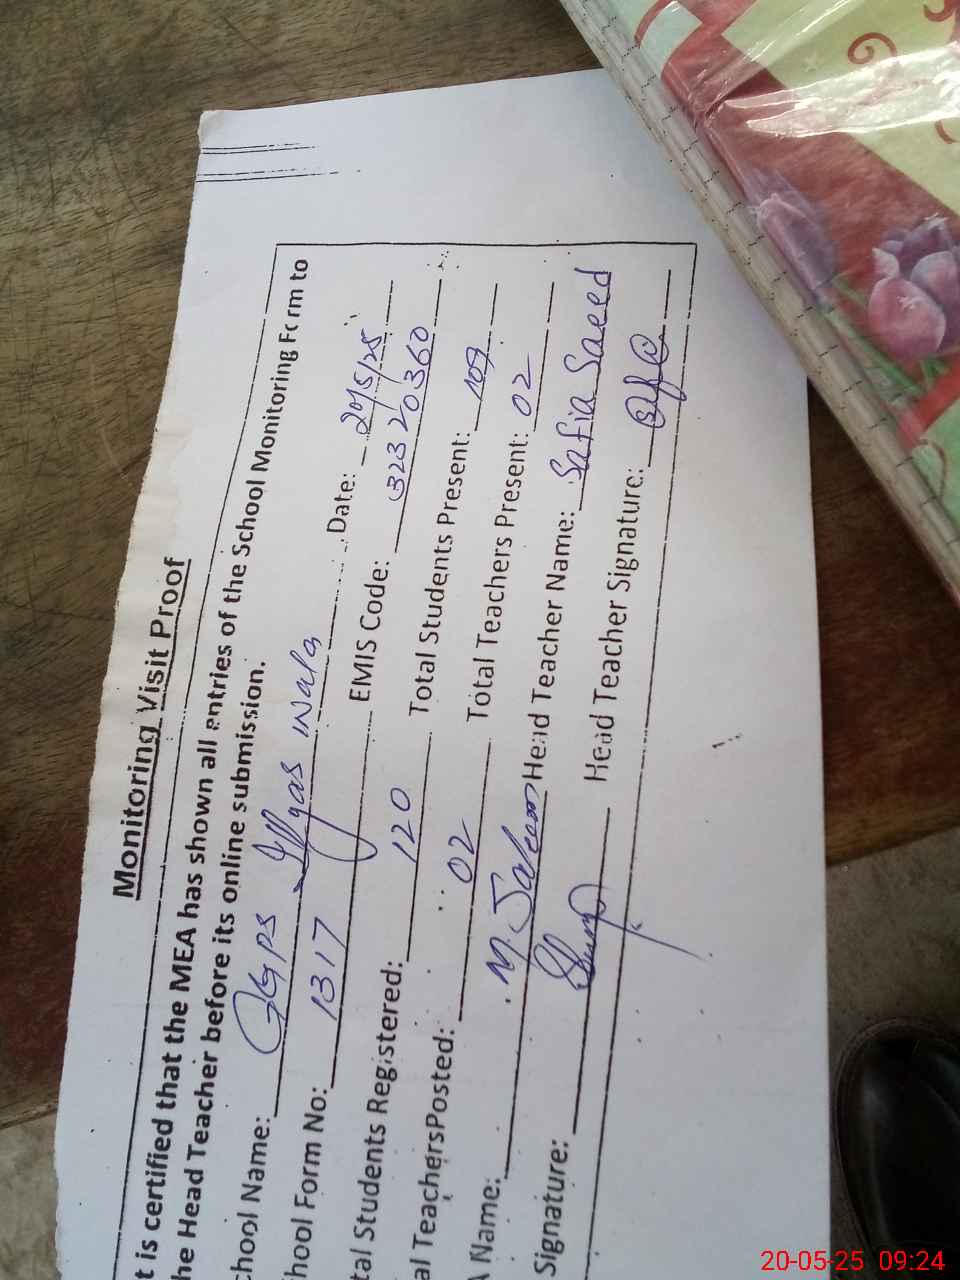 Monitoring Visit Proof
t is certified that the MEA has shown all entries of the School Monitoring Form to
he Head Teacher before its online submission.
chool Name: GGPS Illyas wala Date: 20/5/25
hool Form No: 1317 EMIS Code: 32320360
tal Students Registered: 120 Total Students Present: 109
al TeachersPosted: 02 Total Teachers Present: 02
A Name: M. Saleem Head Teacher Name: Safia Saeed
Signature: Head Teacher Signature:
20-05-25 09:24